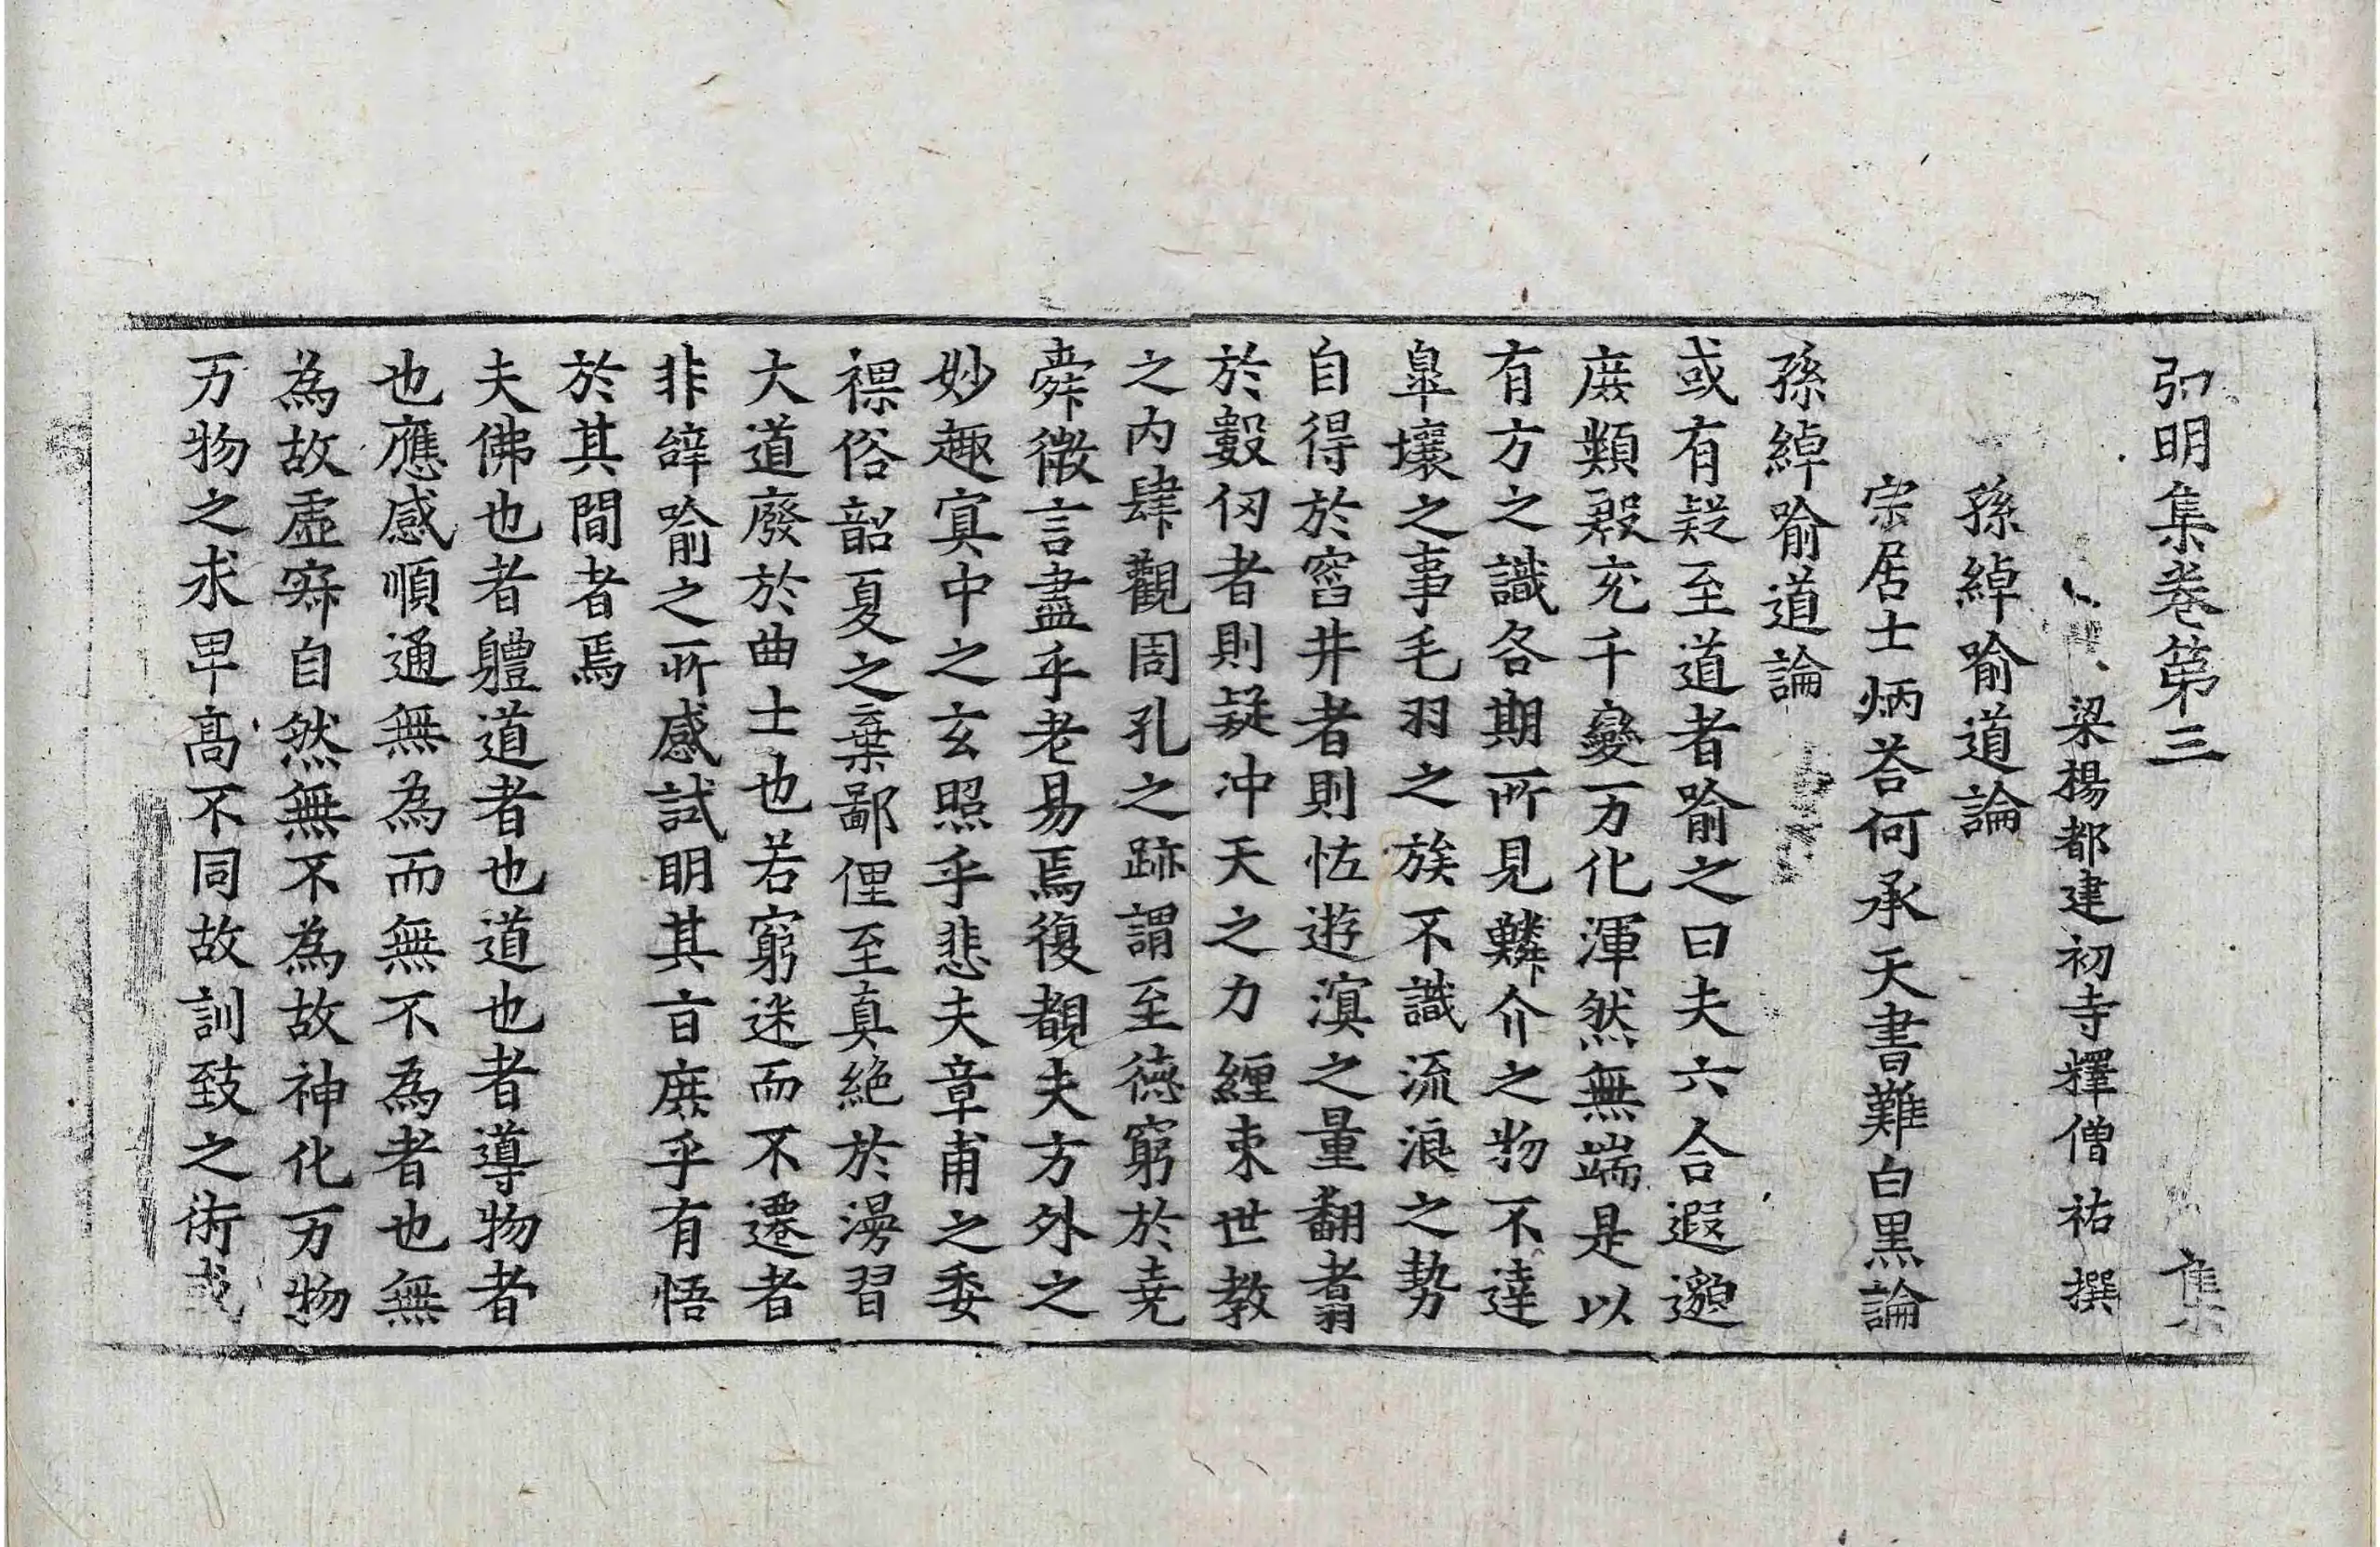 弘明集卷第三 集
梁楊都建初寺釋僧祐撰
孫綽喻道論
宗居士炳荅何承天書難白黑論
孫綽喻道論
或有疑至道者喻之曰夫六合遐邈
庶類殷充千變万化渾然無端是以
有方之識各期所見鱗介之物不達
皐壤之事毛羽之族不識流浪之勢
自得於窞井者則怯遊溟之量翻翥
於數仞者則疑沖天之力纏束世教
之内肆觀周孔之跡謂至德窮於尭
舜微言盡乎老易焉復覩夫方外之
妙趣寘中之玄照乎悲夫章甫之委
裸俗韶夏之棄鄙俚至真絶於漫習
大道廢於曲士也若窮迷而不遷者
非辝喻之所感試明其㫖庶乎有悟
於其間者焉
夫佛也者軆道者也道也者導物者
也應感順通無為而無不為者也無
為故虛寂自然無不為故神化万物
万物之求卑髙不同故訓致之術或